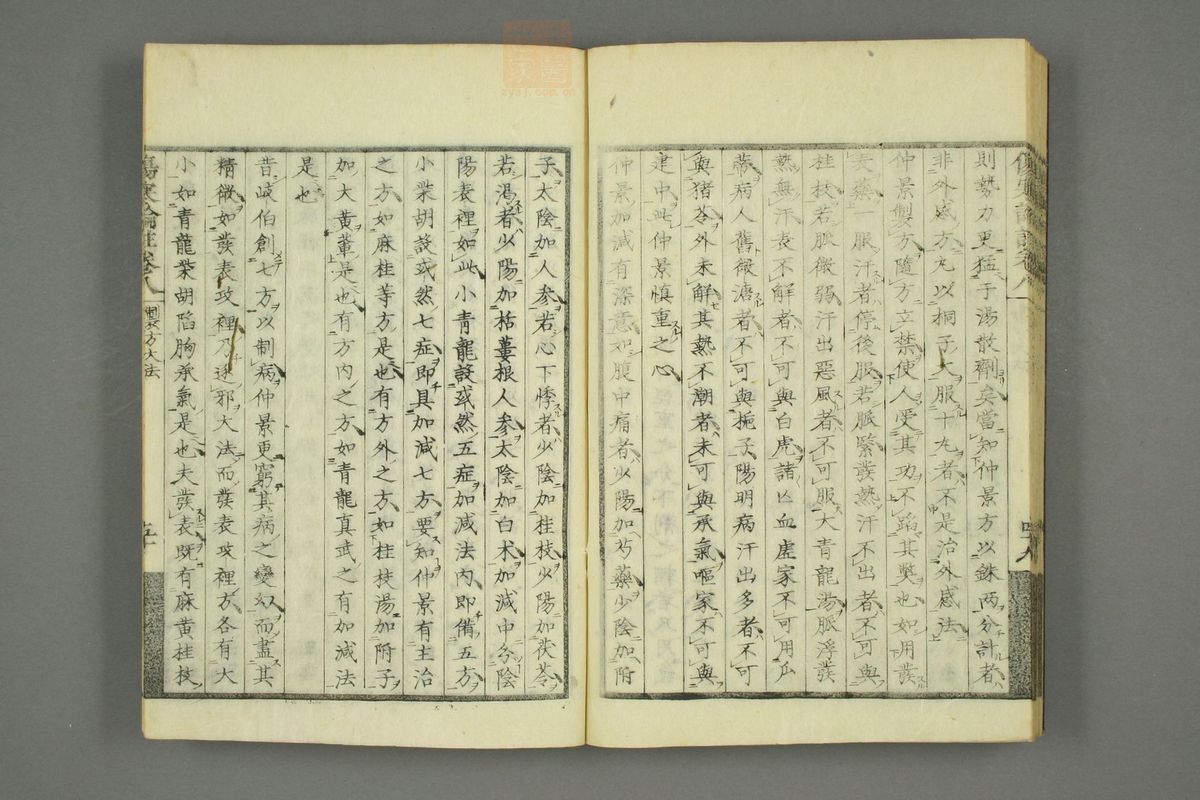 則勢力更猛于湯散劑矣當知仲景方以銖两分計者
非外感方丸以桐子大服十丸者不是治外感法
仲景製方隨方立禁使人受其功不蹈其獘也如用發
表藥一服汗者停後服若脈緊發熱汗不出者不可與
桂枝若脈微弱汗出惡風者不可服大青龍湯脈浮發
熱無汗表不解者不可與白虎諸亡血虛家不可用瓜
蒂病人舊微溏者不可與梔子陽明病汗出多者不可
與猪苓外未解其熱不潮者未可與承氣嘔家不可與
建中此仲景慎重之心
仲景加減有深意如腹中痛者少陽加芍藥少陰加附
四十九
子太陰加人参若心下悸者少陰加桂枝少陽加茯苓
若渴者少陽加栝蔞根人参太陰加白术加減中分陰
陽表裡如此小青龍設或然五症加減法內即備五方
小柴胡設或然七症即具加減七方要知仲景有主治
之方如麻桂等方是也有方外之方如桂枝湯加附子
加大黃輩是也有方內之方如青龍真武之有加減法
是也
昔岐伯創七方以制病仲景更窮其病之變幻而盡其
精微如發表攻裡乃逐邪大法而發表攻裡方各有大
小如青龍柴胡陷胸承氣是也夫發表既有麻黃桂枝
傷寒論註卷八 製方大法 五十